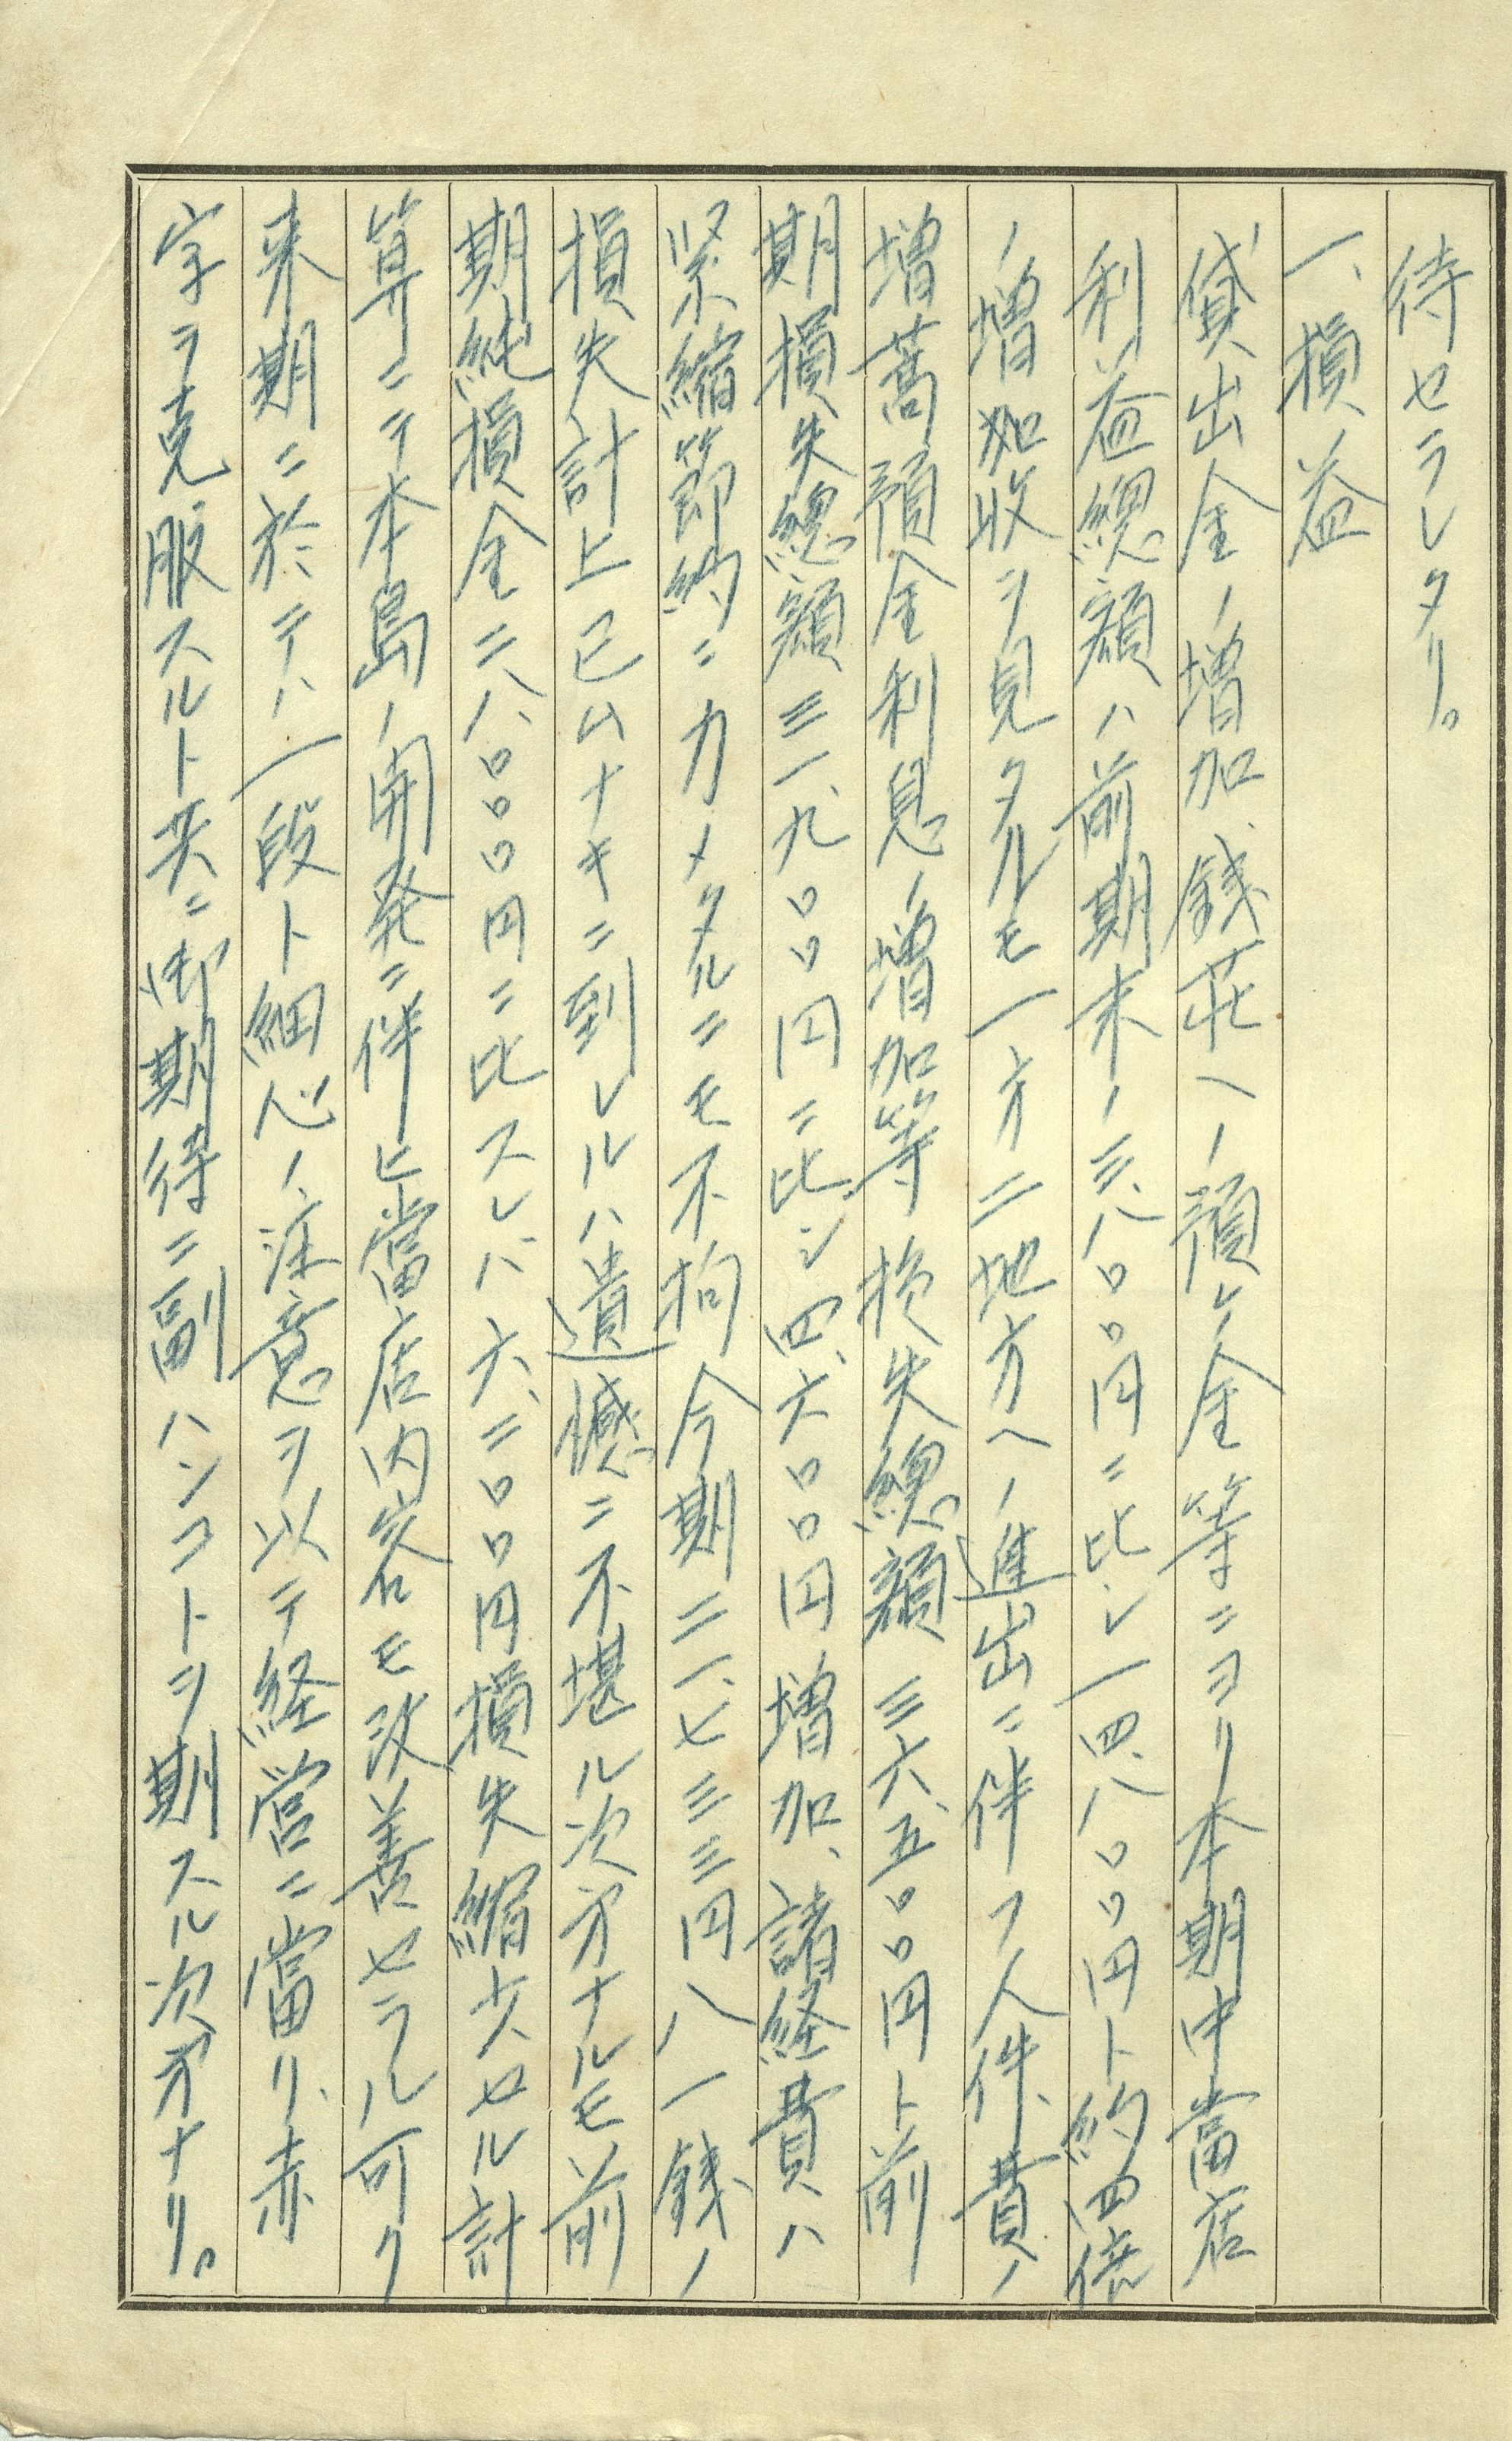 待セラレタリ。
一、損益
貸出金ノ増加、銭荘ヘノ預ケ金等ニヨリ本期中當店
利益総額ハ前期末ノ三、八〇〇円ニ比シ一四、八〇〇円ト約四倍
ノ増加收ヲ見タルモ一方ニ地方ヘノ進出ニ伴フ人件費ノ
増嵩預金利息ノ増加等損失総額三六、五〇〇円ト前
期損失總額三一、九〇〇円ニ比シ四、六〇〇円増加、諸経費ハ
緊縮節約ニカメタルニモ不拘今期二一、七三三円八一銭ノ
損失計上已ムナキニ到レルハ遺憾ニ不堪ル次第ナルモ前
期純損金二八、〇〇〇円ニ比スレバ六、二〇〇円損失縮少セル計
算ニテ本島ノ開発ニ伴ヒ當店内容モ改善セラル可ク
来期ニ於テハ一段ト細心ノ注意ヲ以テ経営ニ當リ、赤
字ヲ克服スルト共ニ御期待ニ副ハンコトヲ期スル次第ナリ。